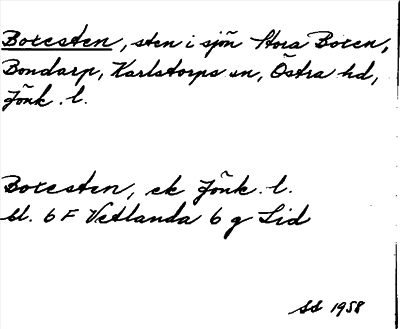 Boresten, sten i sjön Stora Boren,
Bondarp, Karlstorps sn, Östra hd,
Jönk. l.
Boresten, ek Jönk. l.
bl. 6 F Vetlanda 6 g Lid
SS 1958